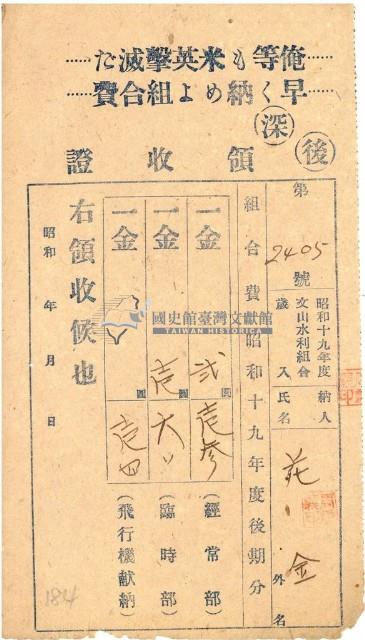 俺等も米英擊滅だ
早く納めよ組合費
後
深
領收證
第2405號
昭和十九年度
文山水利組合
歲入
納人氏名
莊 金
外 名
組合費昭和十九年度後期分
一金 圓 (經常部)
一金 圓 (臨時部)
一金 圓 (飛行機獻納)
右領收候也
昭和 年 月 日
國史館臺灣文獻館
TAIWAN HISTORICA
184